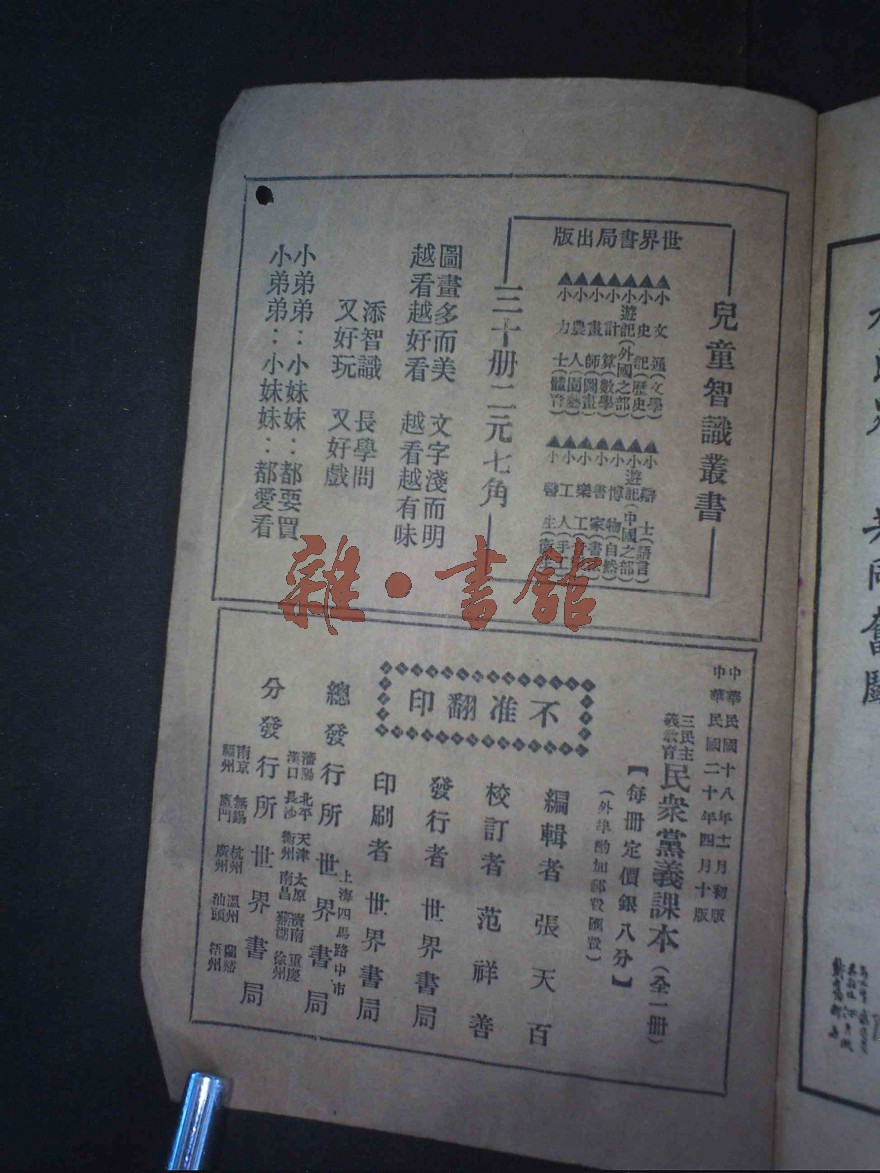 兒童智識叢書
世界書局出版
小文通(文學)
小史記(歷史)
小遊記(外國之部)
小計算(數學)
小畫師(圖畫)
小農人(園藝)
小力士(體育)
小辯士(語言)
小遊記(中國之部)
小博物(自然)
小書家(書
小樂工
小工人(手工)
小醫生(衛生)
三十册二元七角
圖畫多而美 文字淺而明
越看越好看 越看越有味
添智識 長學問
又好玩 又好戲
小弟弟：小妹妹：都要買
小弟弟：小妹妹：都愛看
雜·書館
中華民國十八年十一月初版
中華民國二十年四月十版
三民主義教育 民衆黨義課本(全一册)
【每册定價銀八分】
(外埠酌加郵費匯費)
不准翻印
編輯者 張天百
校訂者 范祥善
發行者 世界書局
印刷者 世界書局
上海四馬路中市
總發行所 世界書局
瀋陽 北平 天津 太原 濟南 重慶
漢口 長沙 衢州 南昌 蕪湖 徐州
分發行所 世界書局
南京 無錫 杭州 溫州 蘭谿
福州 廈門 廣州 汕頭 梧州